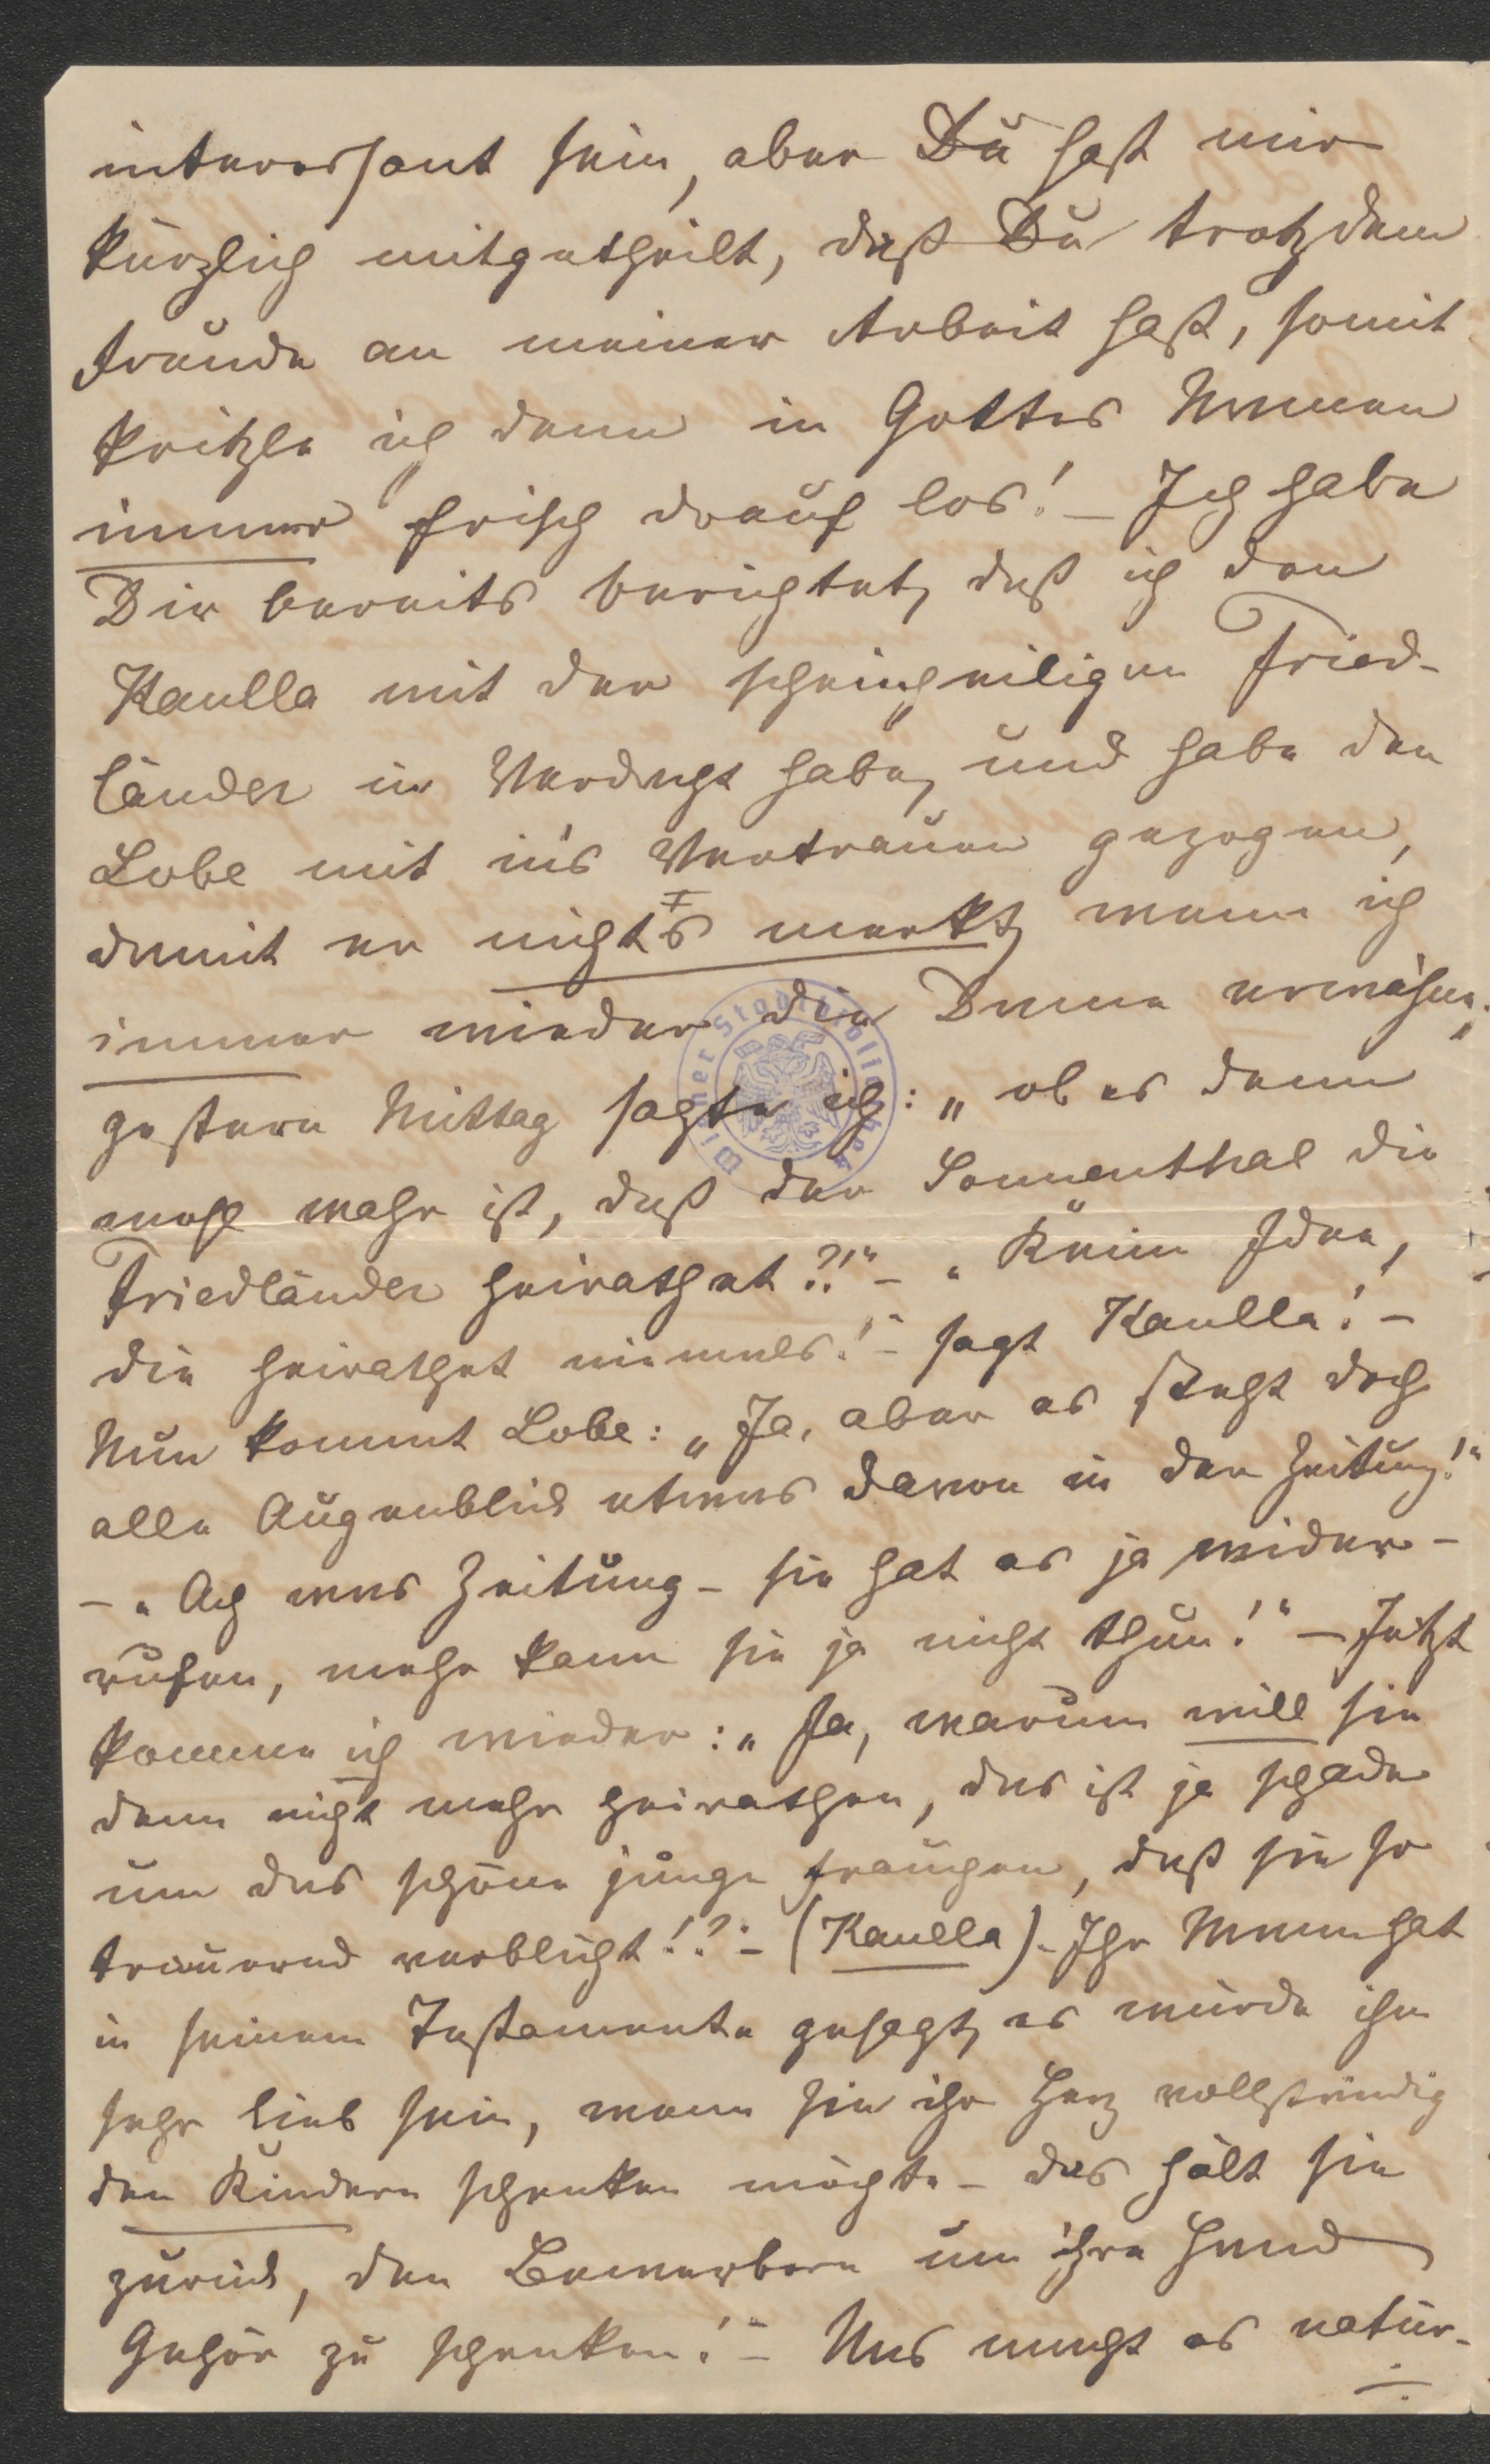 interessant sein, aber Du hast mir
kürzlich mitgetheilt, daß Du trotzdem
Freude an meiner Arbeit hast, somit
kritzle ich denn in Gottes Namen
immer frisch drauf los! – Ich habe
Dir bereits berichtet, daß ich den
Kaulla mit der scheinheiligen Fried-
länder in Verdacht habe, und habe den
Lobe mit in's Vertrauen gezogen,
damit er nichts merkt, wenn ich
immer wieder die Dame erwähne;
gestern Mittag sagte ich: „ob es denn
wohl wahr ist, daß der Sonnenthal die
Friedländer heirathet?!“ – „Keine Idee,
die heirathet niemals!“ – sagt Kaulla! –
Nun kommt Lobe: „Ja, aber es steht doch
alle Augenblick etwas davon in der Zeitung!“
– „Ach was Zeitung – sie hat es ja wider-
rufen, mehr kann sie ja nicht thun!“ – Jetzt
komme ich wieder: „Ja, warum will sie
denn nicht mehr heirathen, das ist ja schade
um das schöne junge Frauchen, daß sie so
trauernd verblüht!?“ – (Kaulla) „Ihr Mann hat
in seinem Testamente gesagt, es würde ihm
sehr lieb sein, wenn sie ihr Herz vollständig
den Kindern schenken möchte – das hält sie
zurück, den Bewerbern um ihre Hand
Gehör zu schenken!“ – Uns macht es natür-
Wiener Stadtbibliothek